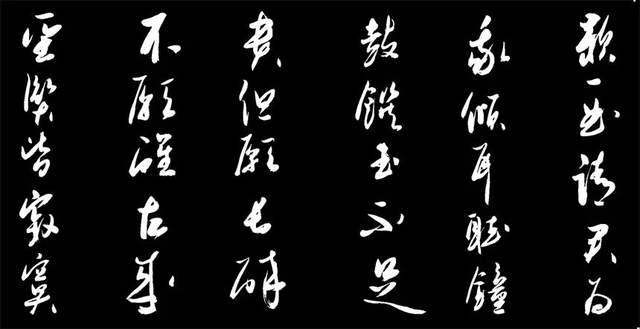 歌一曲請君为
我傾耳聽鐘
鼓饌玉不足
貴但願長醉
不願醒古來
聖賢皆寂寞